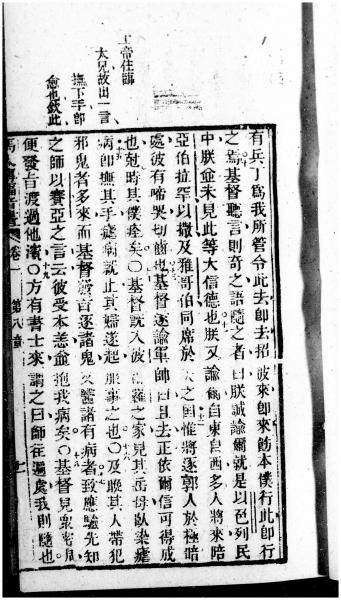 上帝住
太兄故出一言
撫下手卽
愈也欽此
有兵丁爲我所管令此去卽去招彼來卽來飭本僕行此卽行
之焉基督聽言則奇之語隨之者曰朕誠諭爾就是以色列民
中朕並未見此等大信德也朕又諭爾自東自西多人將來陪
亞伯拉罕以撒及雅哥伯同席於天之國惟將逐郭人於極暗
處彼有啼哭切齒也基督遂諭軍帥曰且去正依爾信可得成
也尅時其僕痊矣○基督旣入彼得羅之家見其岳母臥染瘧
病卽撫其手瘧病就止其婦遂起服事之也○及晚其人帶犯
邪鬼者多來而基督發言逐諸鬼又醫諸有病者致應驗先知
之師以賽亞之言云彼受本恙並抱我病矣○基督見眾密周
便發旨渡過他濱○方有書士來謂之曰師在遍處我則隨也
卷一 第八章